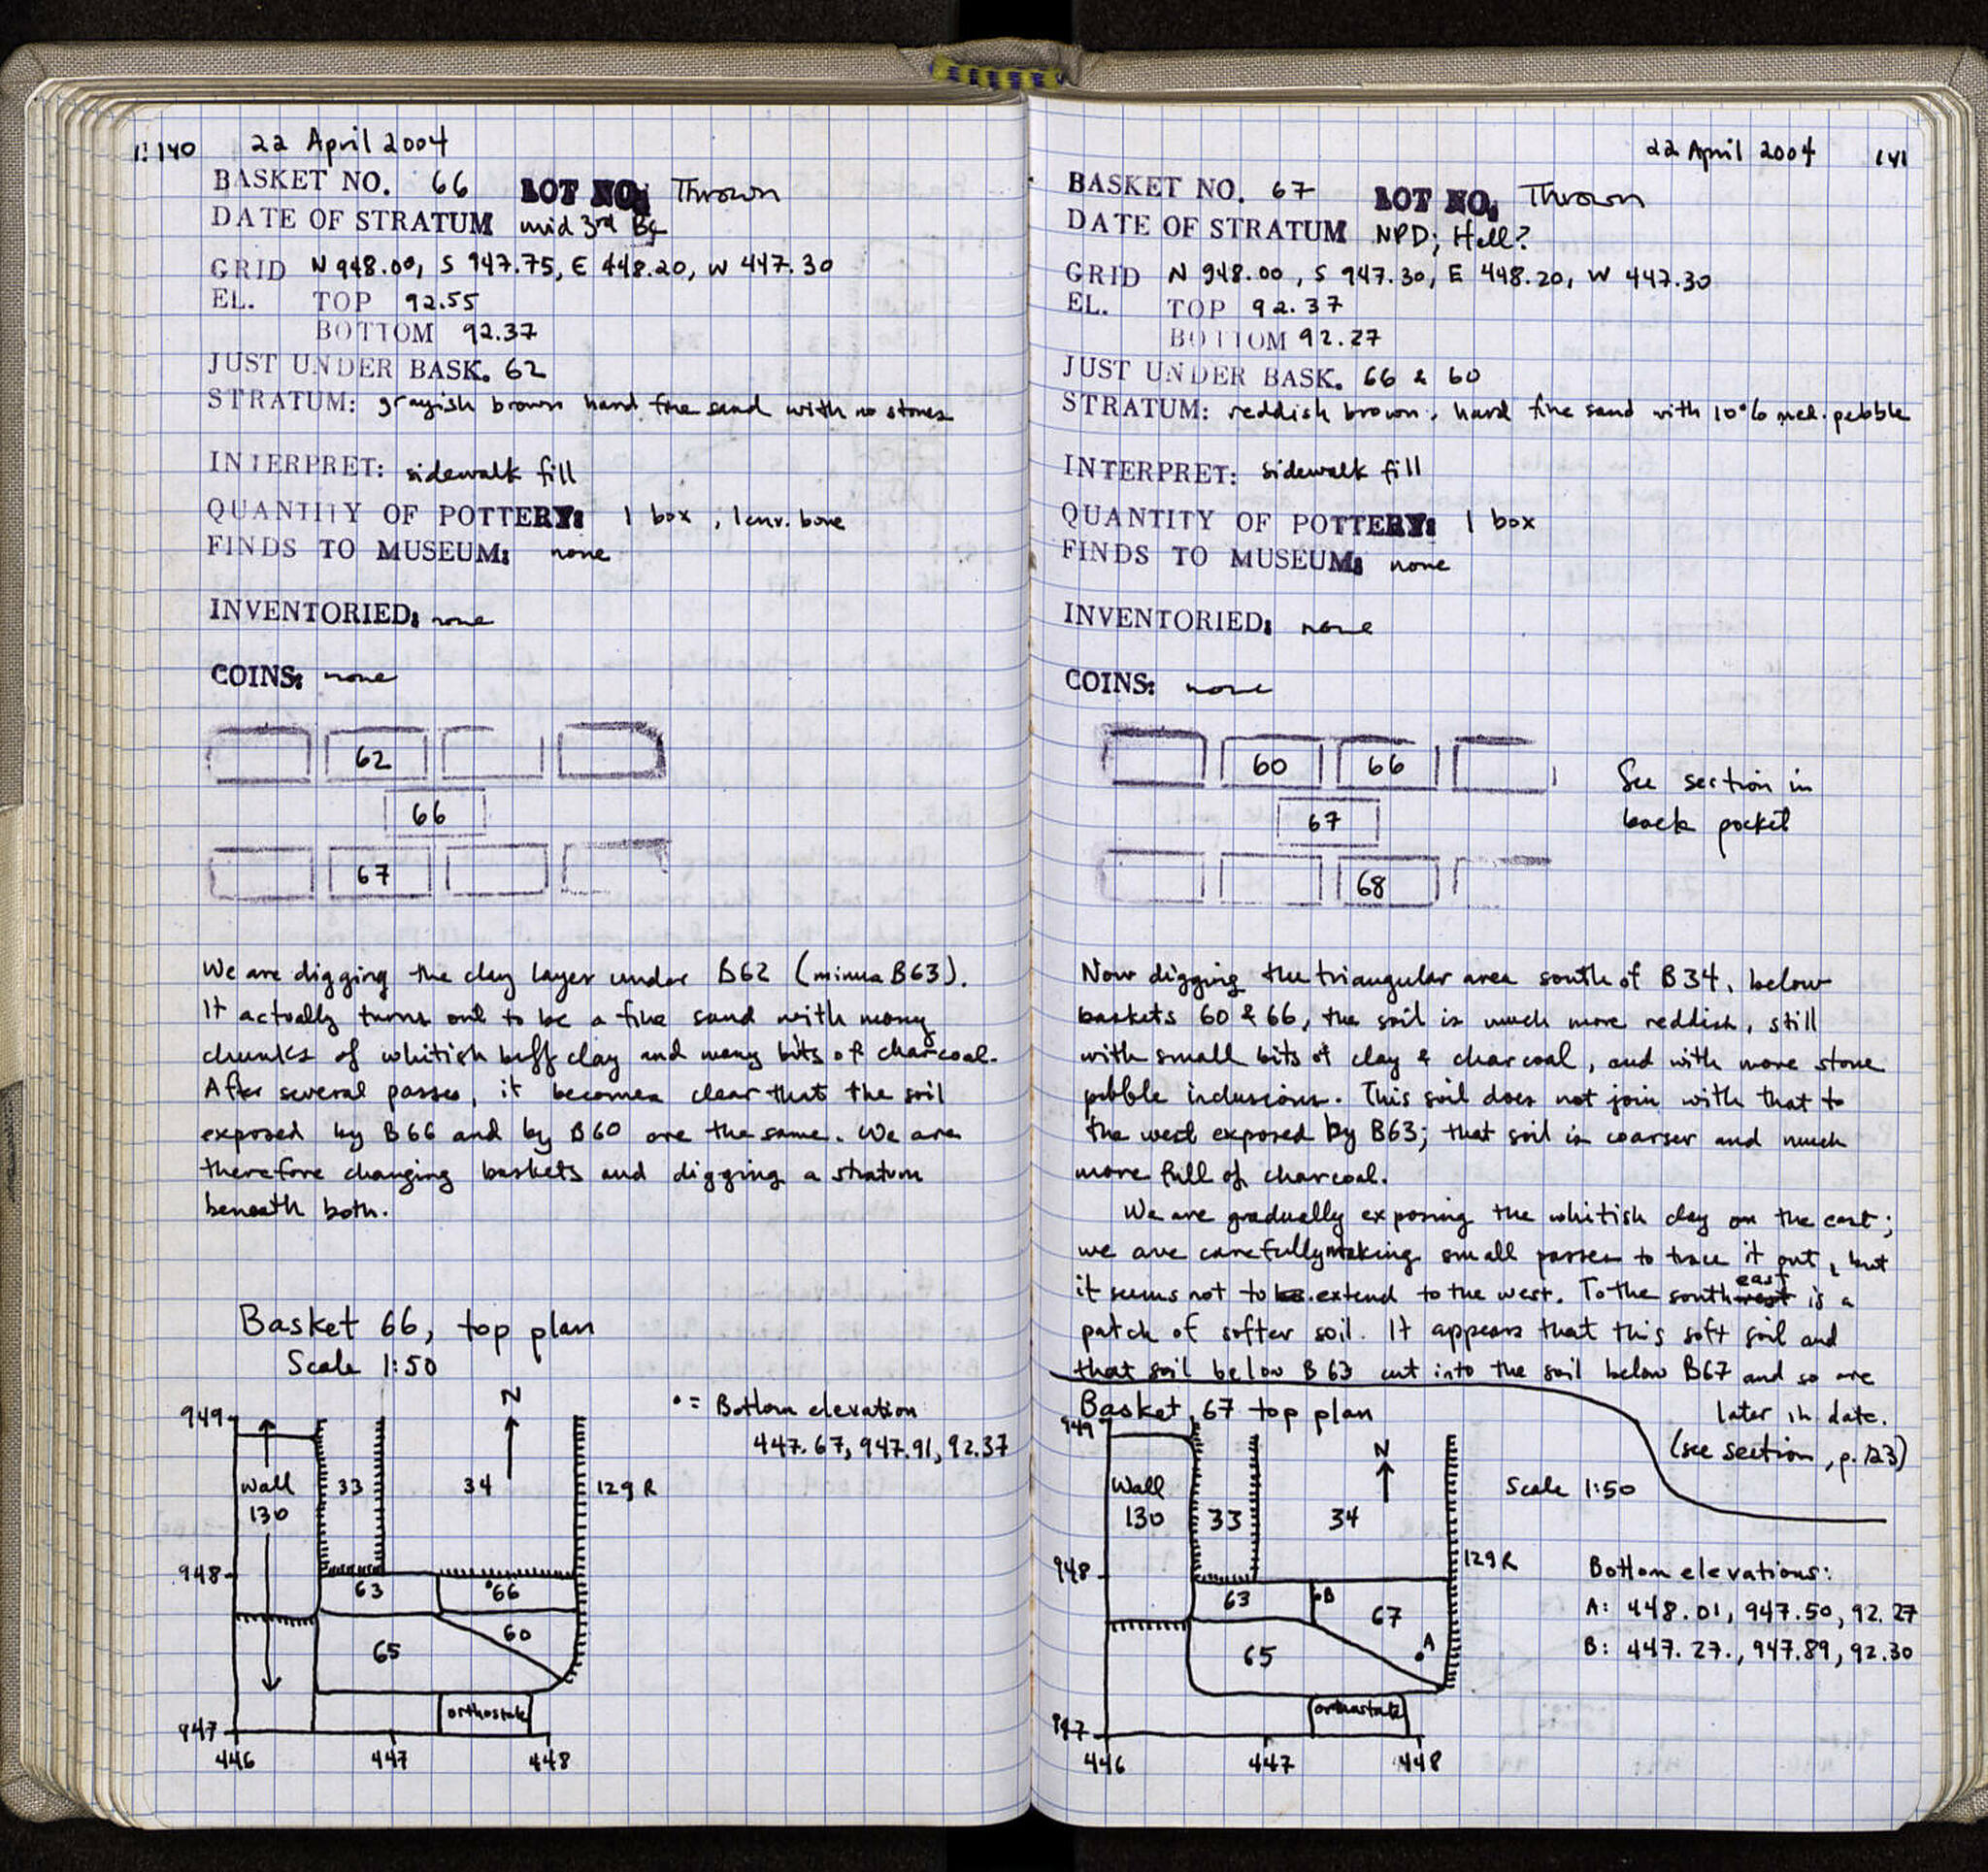 1:140 22 April 2004
BASKET NO. 66 LOT NO. Thrown
DATE OF STRATUM mid 3rd BC
GRID N 948.00, S 947.75, E 448.20, W 447.30
EL. TOP 92.55
BOTTOM 92.37
JUST UNDER BASK. 62
STRATUM: grayish brown hard fine sand with no stones
INTERPRET: sidewalk fill
QUANTITY OF POTTERY: 1 box, 1 env. bone
FINDS TO MUSEUM: none
INVENTORIED: none
COINS: none
62
66
67
We are digging the clay layer under B62 (minus B63).
It actually turns out to be a fine sand with many
chunks of whitish buff clay and many bits of charcoal.
After several passes, it becomes clear that the soil
exposed by B66 and by B60 are the same. We are
therefore changing baskets and digging a stratum
beneath both.
Basket 66, top plan
Scale 1:50
N
• = Bottom elevation
447.67, 947.91, 92.37
949
Wall
130
33
34
129 R
948
63
66
60
65
orthostate
947
446 447 448
22 April 2004 141
BASKET NO. 67 LOT NO. Thrown
DATE OF STRATUM NPD; Hell?
GRID N 948.00, S 947.30, E 448.20, W 447.30
EL. TOP 92.37
BOTTOM 92.27
JUST UNDER BASK. 66 & 60
STRATUM: reddish brown, hard fine sand with 10% med. pebble
INTERPRET: sidewalk fill
QUANTITY OF POTTERY: 1 box
FINDS TO MUSEUM: none
INVENTORIED: none
COINS: none
60 66
67
68
See section in
back pocket
Now digging the triangular area south of B34, below
baskets 60 & 66, the soil is much more reddish, still
with small bits of clay & charcoal, and with more stone
pebble inclusions. This soil does not join with that to
the west exposed by B63; that soil is coarser and much
more full of charcoal.
We are gradually exposing the whitish clay on the east;
we are carefully making small passes to trace it out, but
it seems not to be extend to the west. To the southwest east is a
patch of softer soil. It appears that this soft soil and
that soil below B63 cut into the soil below B67 and so are
later in date.
(see section, p. 123)
Basket 67 top plan
Scale 1:50
949
N
Wall
130
33
34
129 R
948
63
B
67
A
65
orthostate
947
446 447 448
Bottom elevations:
A: 448.01, 947.50, 92.27
B: 447.27., 947.89, 92.30